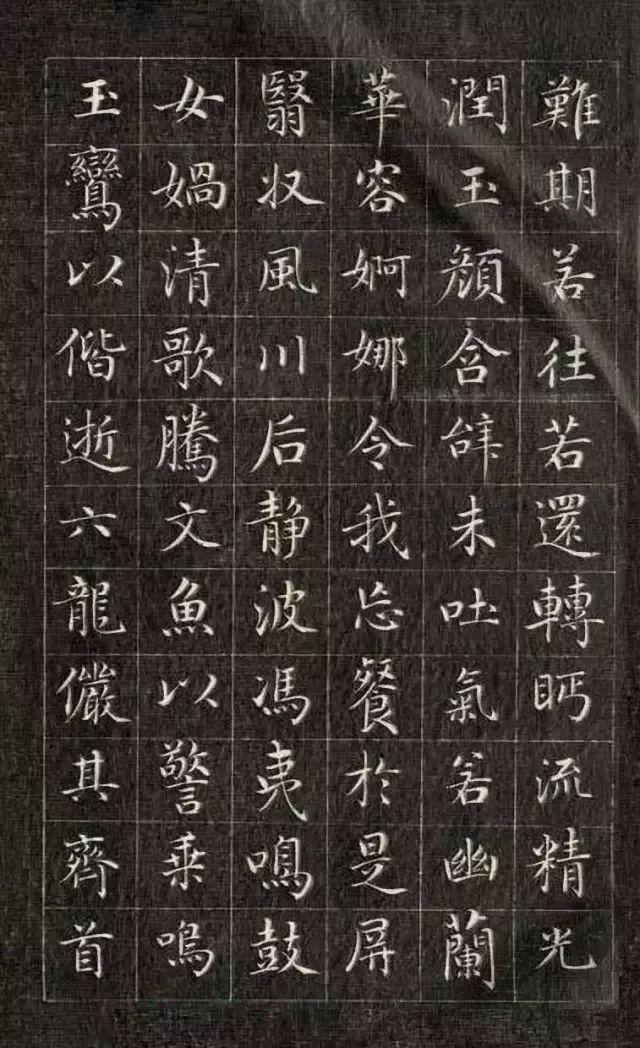 難期若往若還轉眄流精光
潤玉顔含辝未吐氣若幽蘭
華容婀娜令我忘餐於是屏
翳收風川后靜波馮夷鳴鼓
女媧清歌騰文魚以警乗鳴
玉鸞以偕逝六龍儼其齊首